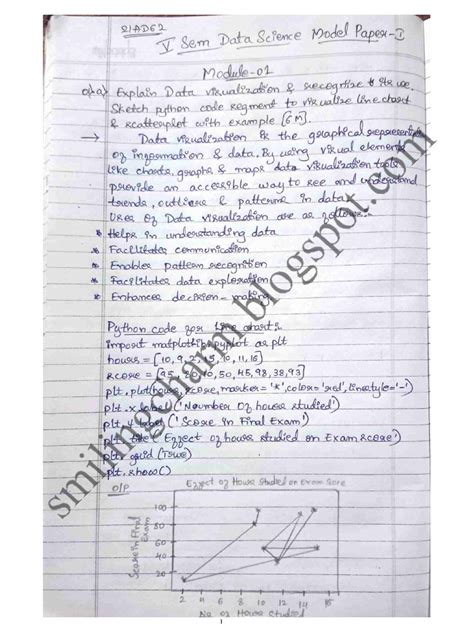 21AD62
V Sem Data Science Model Paper-I
Module-01
Q1.a) Explain Data visualization & recognize it's use.
Sketch python code segment to visualize line chart
& scatterplot with example [6M].
→ Data visualization is the graphical representation
of information & data. By using visual elements
like charts, graphs & maps data visualization tools
provide an accessible way to see and understand
trends, outliers & patterns in data.
Uses of Data visualization are as follows.
* Helps in understanding data
* Facilitates communication
* Enables pattern recognition
* Facilitates data exploration
* Enhances decision-making
Python code for line chart:
import matplotlib.pyplot as plt
hours = [10, 9, 2, 15, 10, 11, 16]
score = [95, 50, 45, 98, 38, 93]
plt.plot(hours, score, marker='*', color='red', linestyle='-')
plt.xlabel('Number Of hours studied')
plt.ylabel('Score in Final Exam')
plt.title('Effect of hours studied on Exam score')
plt.grid(True)
plt.show()
O/P
Effect of Hours Studied on Exam Score
Score in Final Exam
100
80
60
40
20
2 4 6 8 10 12 14
No of Hours Studied
1
smilingcharm.blogspot.com